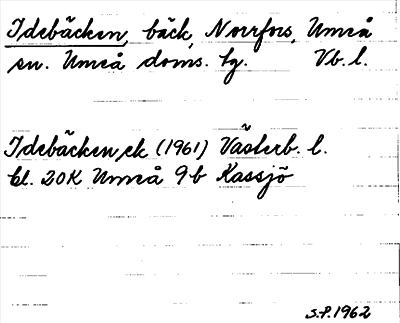 Idebäcken, bäck, Norrfors, Umeå
sn. Umeå doms. tg. Vb. l.
Idebäcken, ek (1961) Västerb. l.
bl. 20K Umeå 9b Kassjö
S.P. 1962